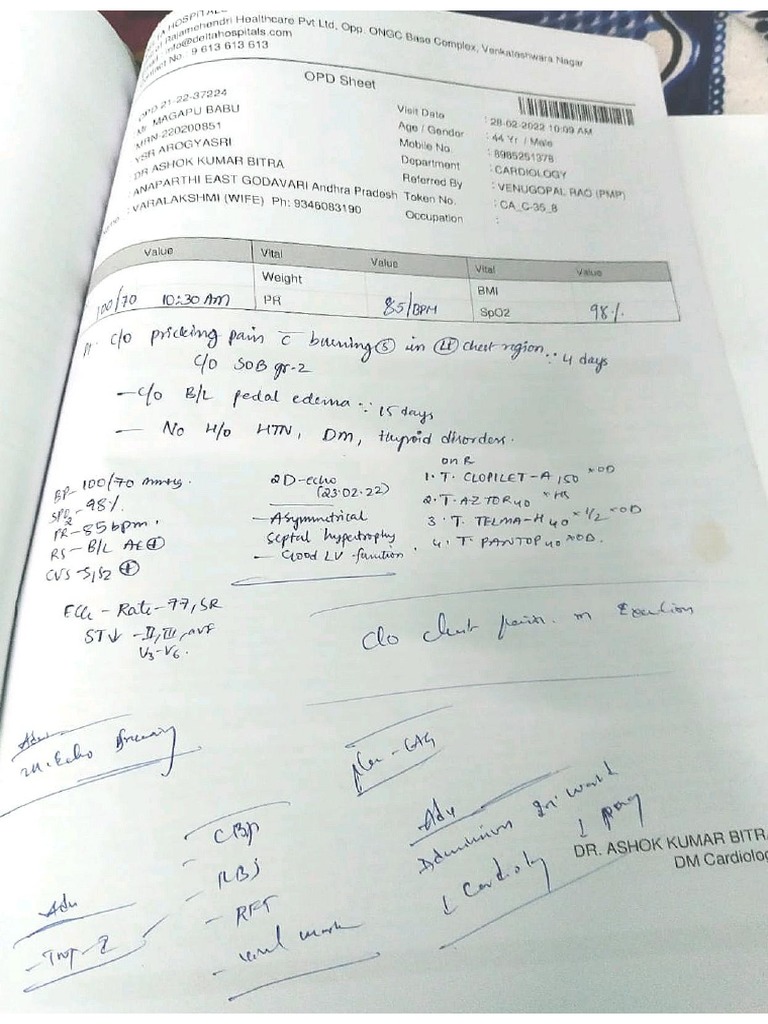 TA HOSPITAL
of Rajamehendri Healthcare Pvt Ltd, Opp. ONGC Base Complex, Venkateshwara Nagar
info@deltahospitals.com
Contact No. 9 613 613 613
OPD Sheet
OPD 21-22-37224
Mr MAGAPU BABU
MRN-220200851
YSR AROGYASRI
DR ASHOK KUMAR BITRA
: ANAPARTHI EAST GODAVARI Andhra Pradesh
: VARALAKSHMI (WIFE) Ph: 9346083190
Visit Date : 28-02-2022 10:09 AM
Age / Gender : 44 Yr / Male
Mobile No. : 8985251378
Department : CARDIOLOGY
Referred By : VENUGOPAL RAO (PMP)
Token No. : CA_C-35_8
Occupation :
Value Vital Value Vital Value
Weight BMI
100/70 10:30 AM PR 85/BPM SpO2 98%
Pt. c/o pricking pain c̄ burning (S) in (Lt) chest region ∵ 4 days
c/o SOB gr-2
- c/o B/L pedal edema ∵ 15 days
- No H/o HTN, DM, thyroid disorders.
BP- 100/70 mmHg.
SPO2 - 98%
PR- 85 bpm.
RS- B/L AE(+)
CVS - S1S2 (+)
2D-echo
(23.02.22)
- Asymmetrical
septal hypertrophy
- Good LV function.
on R
1. T. CLOPILET-A 150 × OD
2. T. AZTOR 40 × HS
3. T. TELMA-H 40 × 1/2 × OD
4. T. PANTOP 40 × OD.
ECG - Rate-77, SR
ST↓ - II, III, avF
V3-V6.
c/o chest pain on Exertion
Adv
Echo
Plan - CAG
Adv
Admission in ward
↓
↓ Cardiology
DR. ASHOK KUMAR BITRA
DM Cardiolog
- CBP
- RBS
- RFT
- viral mark
Adv
- Trop-I